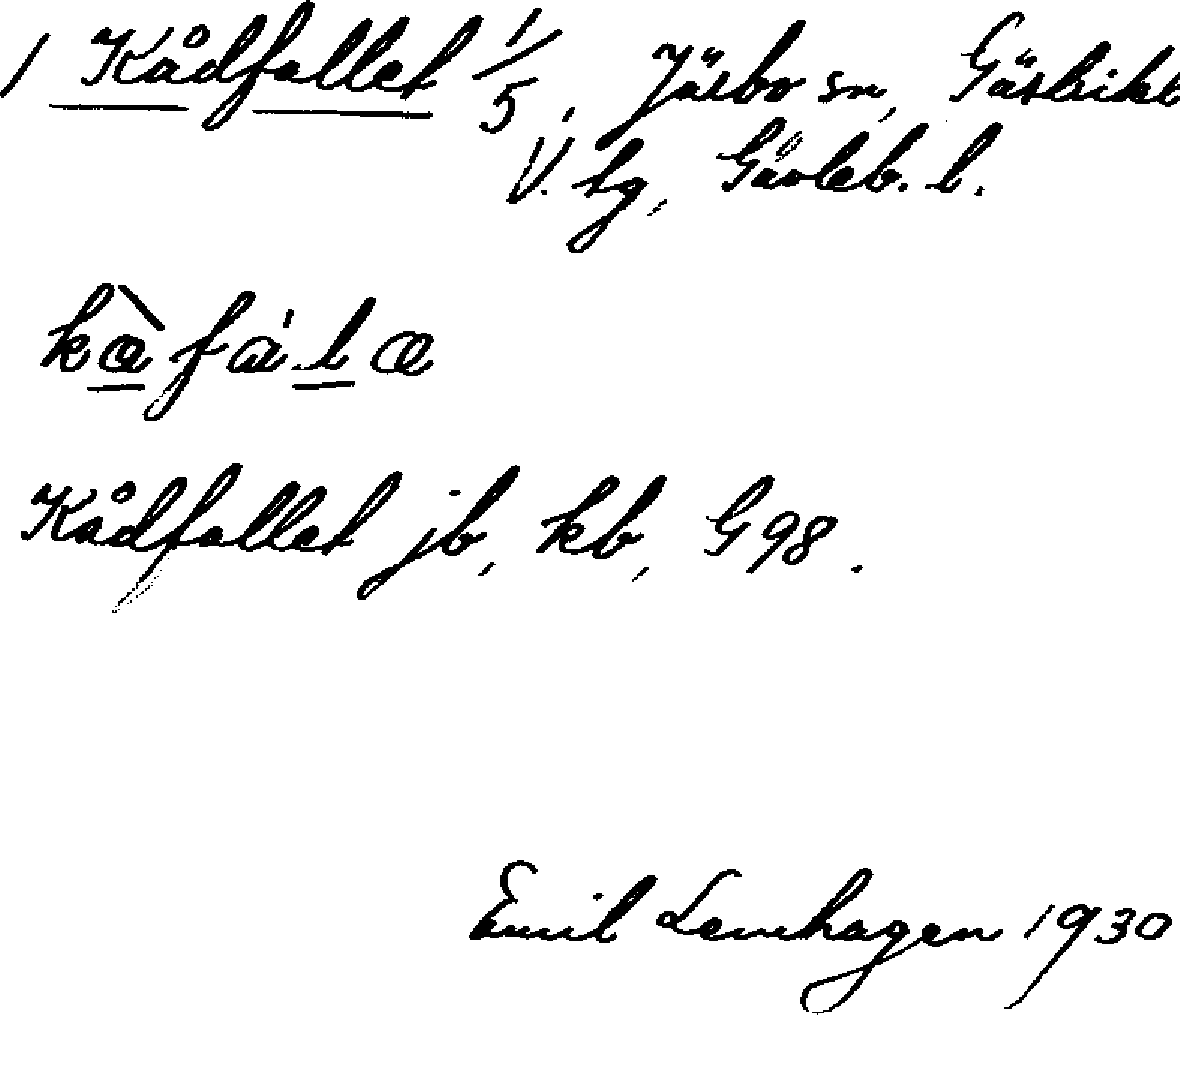 1 Kådfallet 1/5, Järbo sn, Gästrikl
V. tg, Gävleb. l.
Kådfallet jb, kb, G 98.
Emil Lewhagen 1930